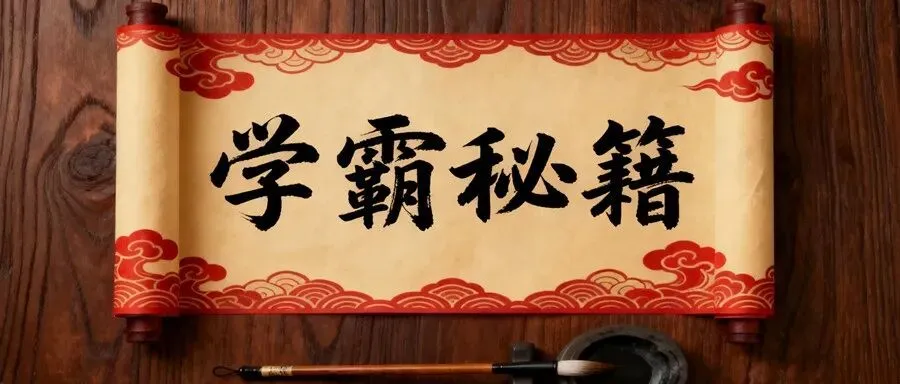 学霸秘籍